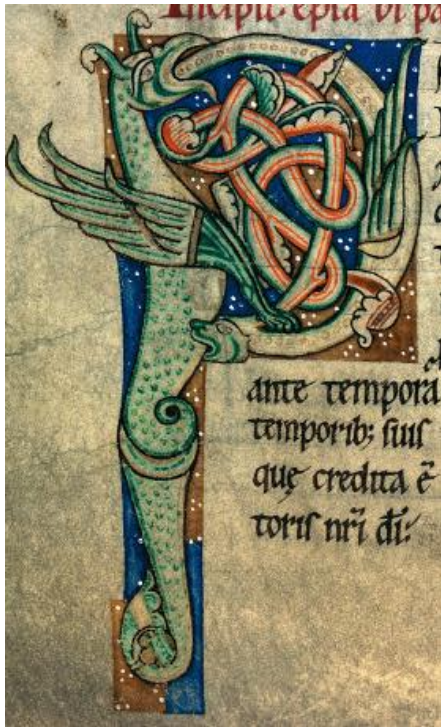 Incipit epła bi pa
P
ante tempora
temporib; suis
que credita ē
toris nr̄i dī: